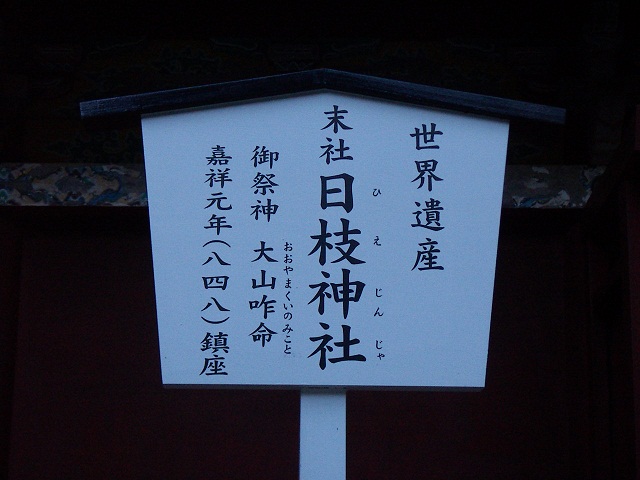 世界遺産
末社 日枝神社
ひえじんじゃ
御祭神 大山咋命
おおやまくいのみこと
嘉祥元年(八四八)鎮座